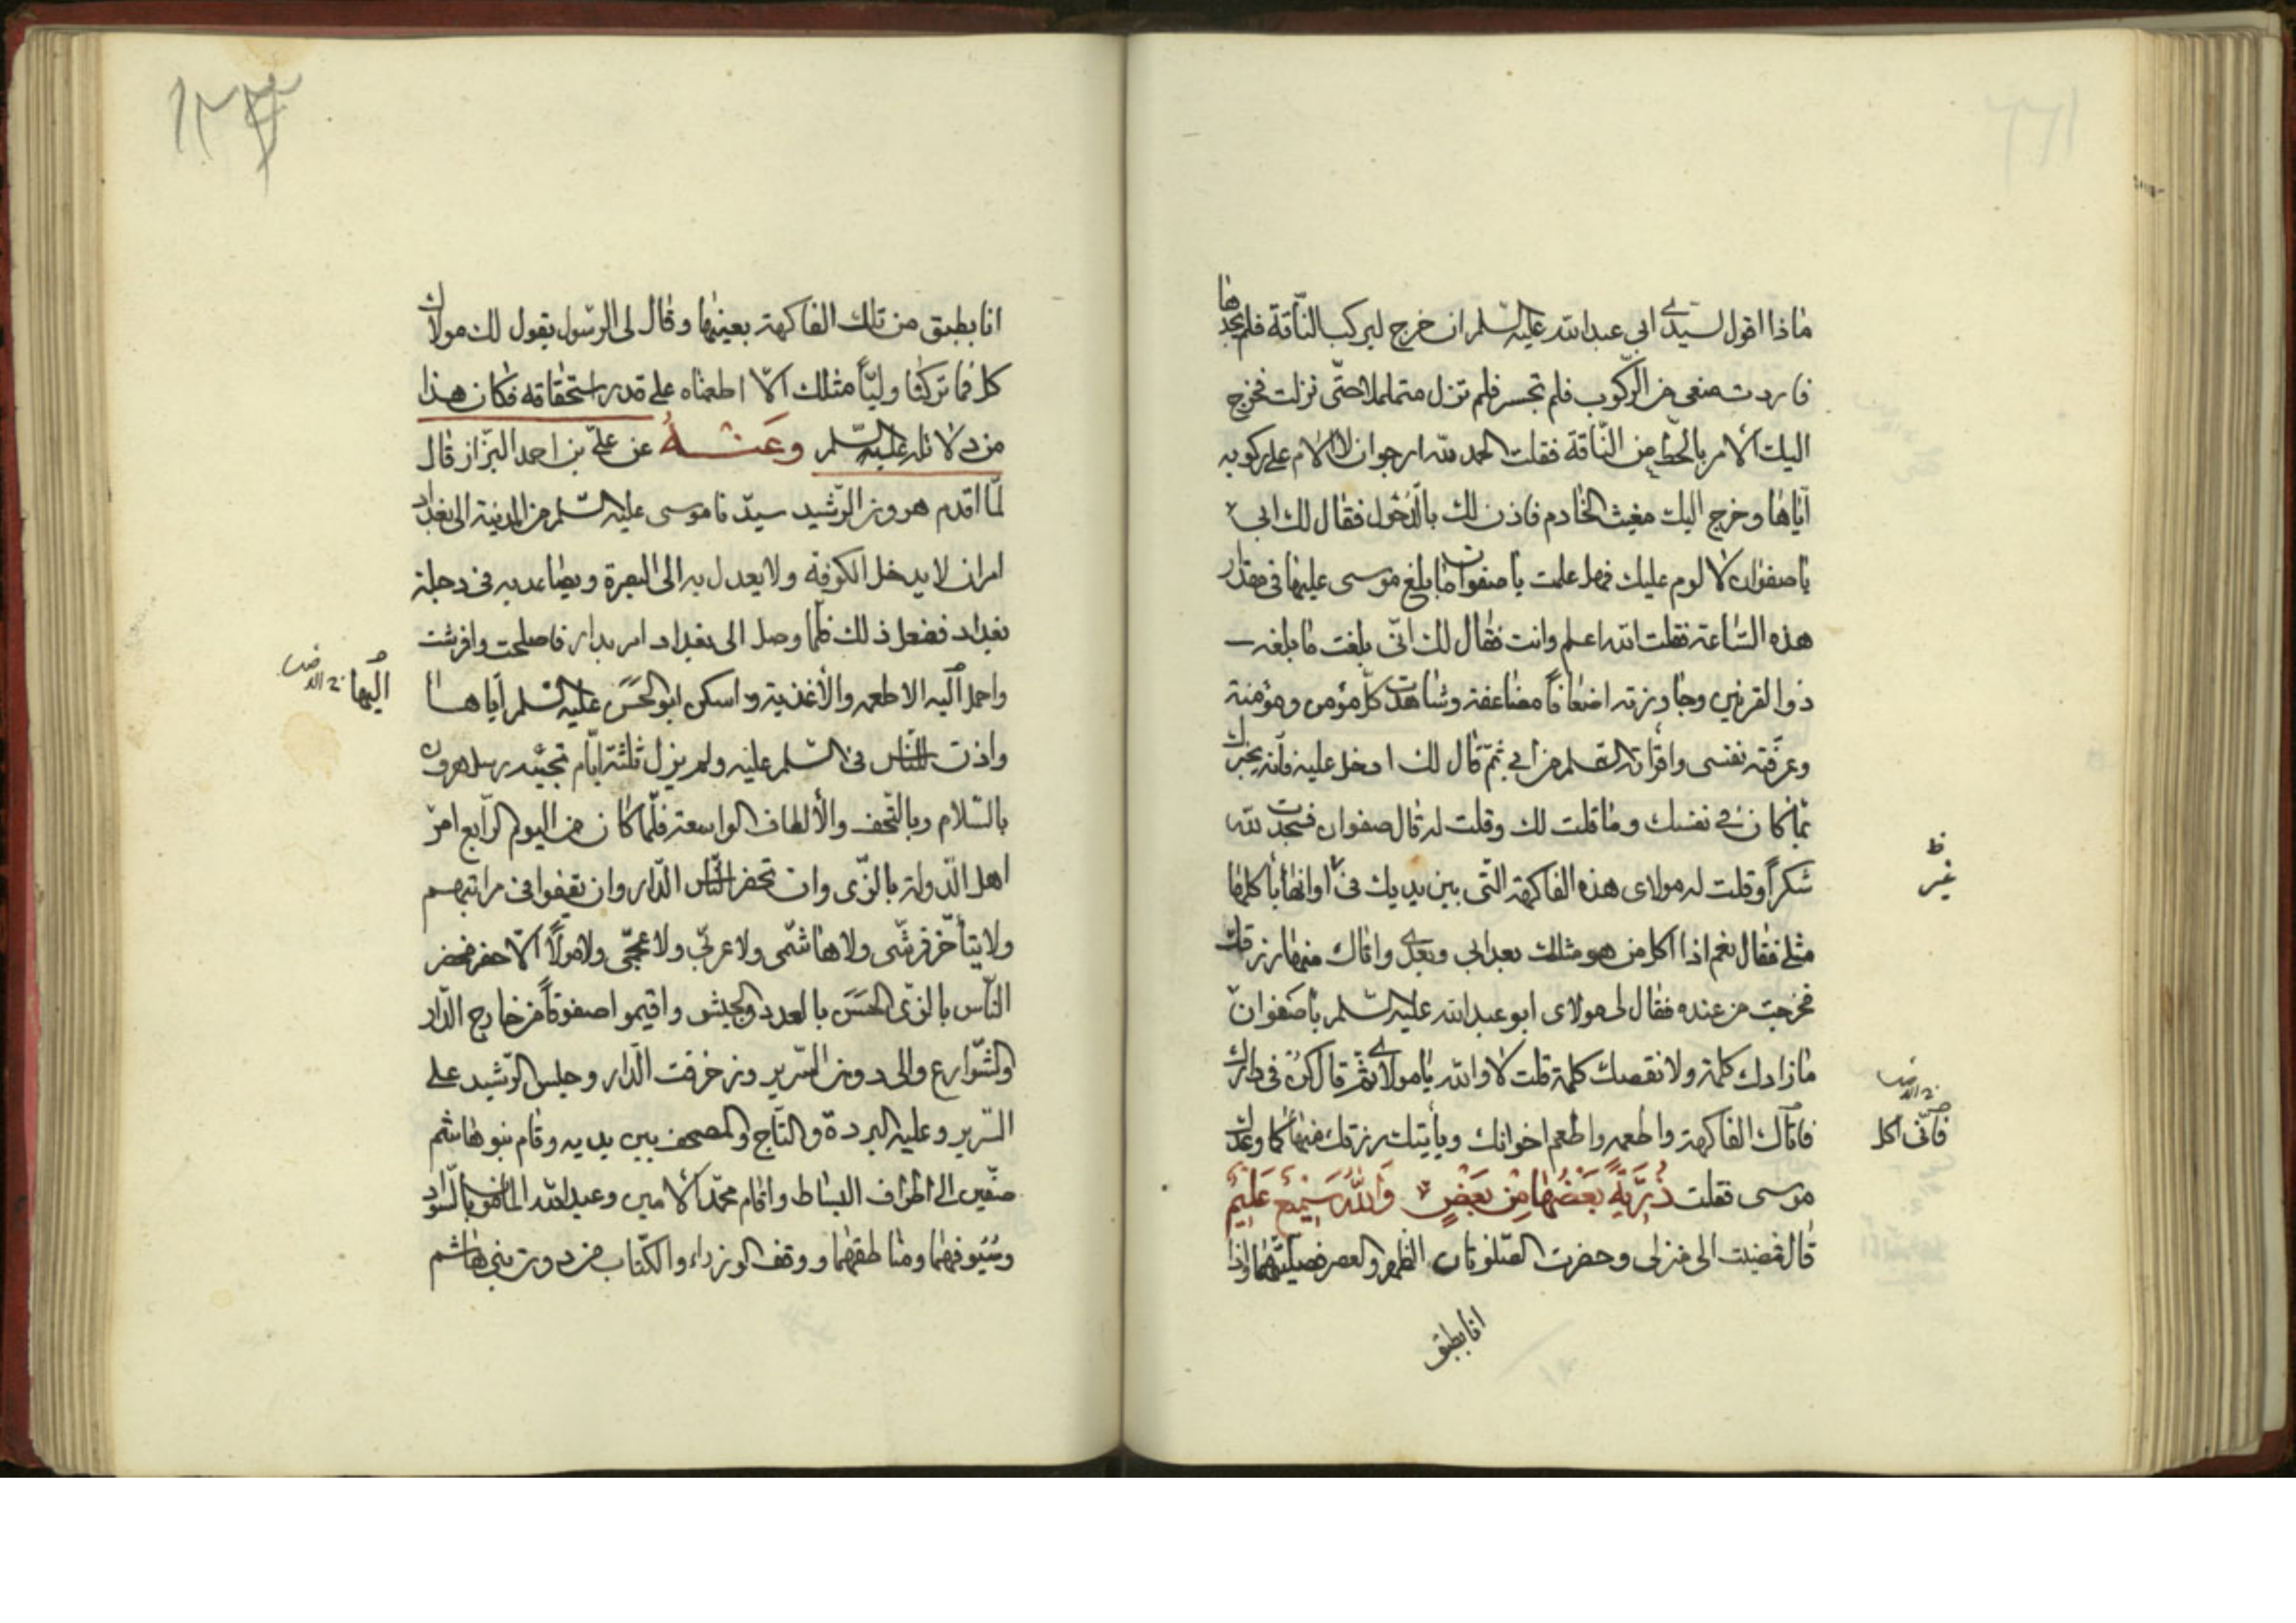 ماذا اقول لسيدى ابى عبدالله عليه السلم ان خرج ليركب الناقة فلم يجدها
فاردت منعى من الركوب فلم تجسر فلم تزل متململا حتى نزلت فخرج
اليك الامر بالحط من الناقة فقلت الحمد لله ارجو ان لا الام على ركوبه
اياها وخرج اليك مغيث الخادم فاذن لك بالدخول فقال لك ابى
يا صفوان لا لوم عليك فهل علمت يا صفوان ما بلغ موسى عليها فى مقدار
هذه الساعة فقلت الله اعلم وانت فقال لك انى بلغت ما بلغه
ذو القرنين وجاوزته اضعافا مضاعفة وشاهدت كل مؤمن ومؤمنة
وعرفته نفسى واقرأته السلم من ابى ثم قال لك ادخل عليه فانه يخبرك
بما كان فى نفسك وما قلت لك وقلت له قال صفوان فسجدت لله
شكرا وقلت له مولاى هذه الفاكهة التى بين يديك فى اوانها يأكلها
غير
ظ
مثلى فقال نعم اذا اكل من هو مثلك بعد ابى وبعدى واتاك منها رزقك
فخرجت من عنده فقال لى مولاى ابو عبدالله عليه السلم يا صفوان
ما زادك كلمة ولا نقصك كلمة قلت لا والله يا مولاى ثم قال كن فى دارك
فانى اكل
فاآكل الفاكهة واطعمه واطعم اخوانك ويأتيك رزقك منها كما وعدك
موسى فقلت ذُرِّيَّةً بَعْضُهَا مِنْ بَعْضٍ وَاللّٰهُ سَمِيعٌ عَلِيمٌ
قال فمضيت الى منزلى وحضرت الصلوتان الظهر والعصر فصليتهما واذا
انا بطبق
١٣٤
انا بطبق من تلك الفاكهة بعينها وقال لى الرسول يقول لك مولاك
كل فما تركنا وليا مثلك الا اطعمناه على قدر استحقاقه فكان هذا
من دلائله عليه السلم وعَنْهُ عن على بن احمد البزاز قال
لما اقدم هرون الرشيد سيدنا موسى عليه السلم من المدينة الى بغداد
امر ان لا يدخل الكوفة ولا يعدل به الى البصرة ويصاعد به فى دجلة
بغداد ففعل ذلك فلما وصل الى بغداد امر بدار فاصلحت وافرشت
واحمل اليه الاطعمه والأغذية واسكن ابو الحَسَن عليه السلم اياها
اليها
واذن للناس فى السلم عليه ولم يزل ثلثة ايام تجيئه رسل هرون
بالسلام وبالتحف والألطاف الواسعة فلما كان من اليوم الرابع امر
اهل الدولة بالزى وان تحضر الناس الدار وان يقفوا فى مراتبهم
ولا يتأخر قرشى ولا هاشمى ولا عربى ولا عجمى ولا مولا الا حضر فحضر
الناس بالزى الحَسَن بالعدد والجيش واقيموا صفوفا من خارج الدار
والشوارع والى دون السرير وزخرفت الدار وجلس الرشيد على
السرير وعليه البردة والتاج والمصحف بين يديه وقام بنو هاشم
صفين الى اطراف البساط واقام محمد الامين وعبدالله المامون بالسواد
وسيوفهما ومناطقهما ووقف الوزراء والكتاب من دون بنى هاشم